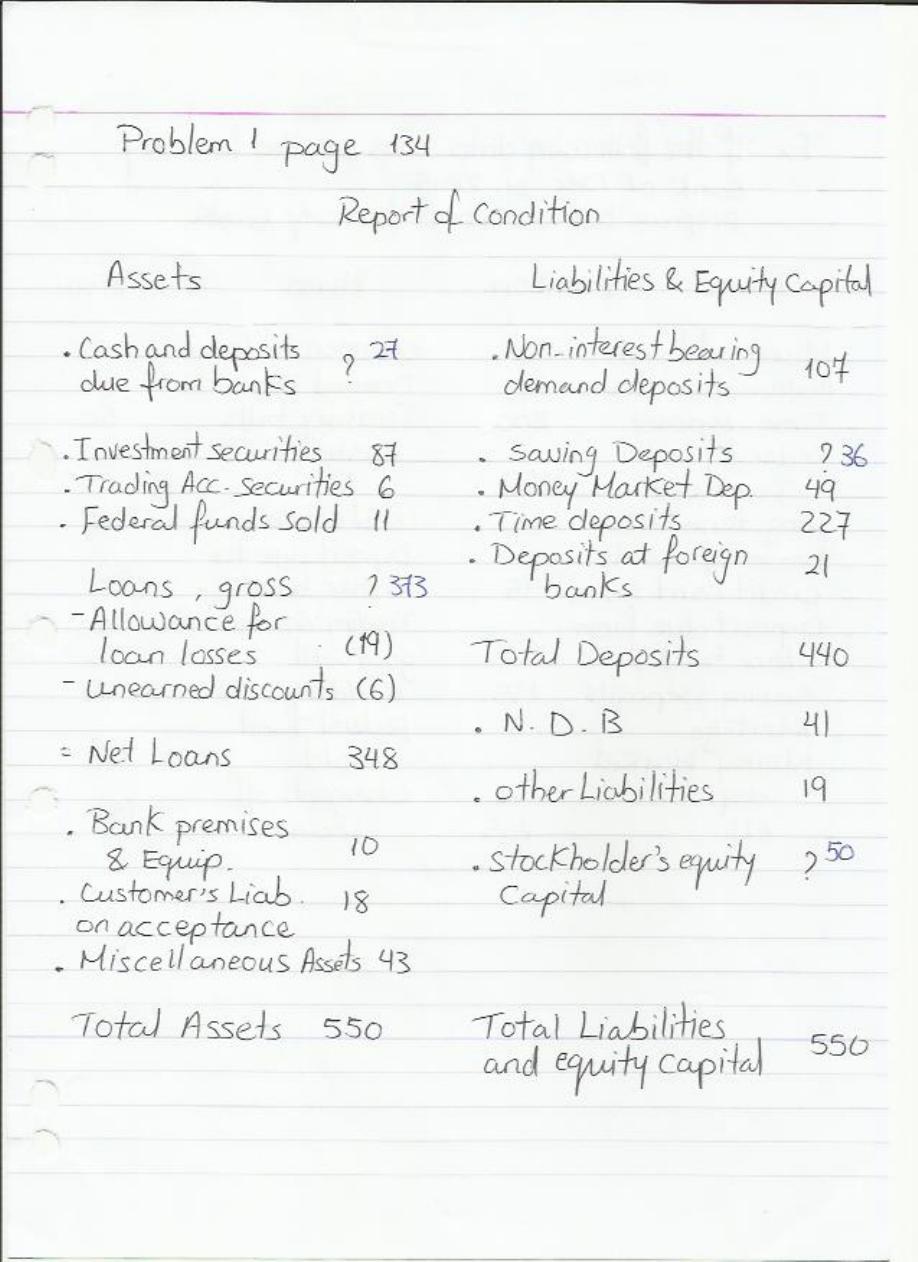 Problem 1 page 134
Report of Condition
Assets
Liabilities & Equity Capital
. Cash and deposits ? 27
due from banks
. Investment securities 87
. Trading Acc. securities 6
. Federal funds sold 11
Loans, gross ? 373
- Allowance for
loan losses (19)
- unearned discounts (6)
= Net Loans 348
. Bank premises
& Equip. 10
. Customer's Liab. 18
on acceptance
. Miscellaneous Assets 43
Total Assets 550
. Non-interest bearing
demand deposits 107
. Saving Deposits ? 36
. Money Market Dep. 49
. Time deposits 227
. Deposits at foreign
banks 21
Total Deposits 440
. N. D. B 41
. other Liabilities 19
. Stockholder's equity ? 50
Capital
Total Liabilities
and equity capital 550